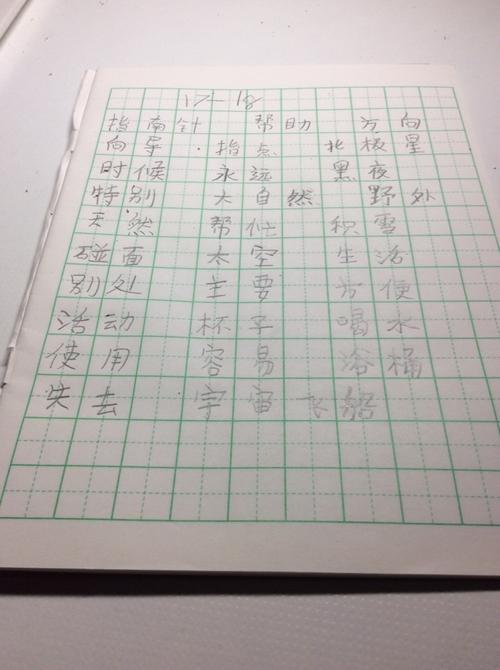 17-18
指南针 帮助 方向
向导 指点 北极星
时候 永远 黑夜
特别 大自然 野外
天然 帮忙 积雪
碰面 太空 生活
别处 主要 方便
活动 杯子 喝水
使用 容易 浴桶
失去 宇宙飞船